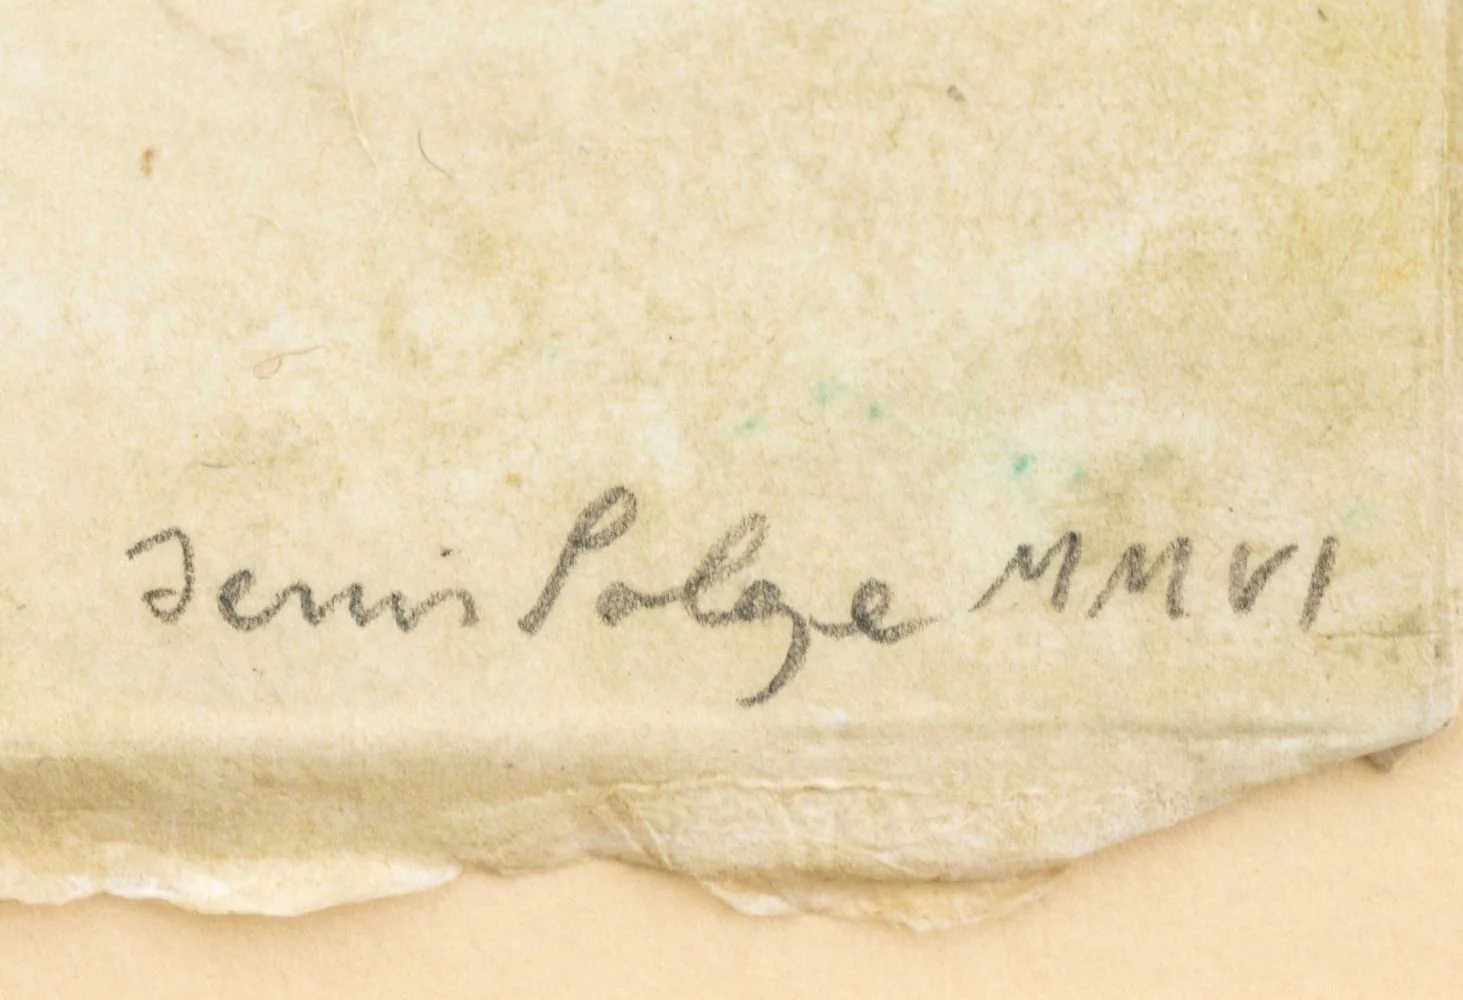 Denis Polge MMVI